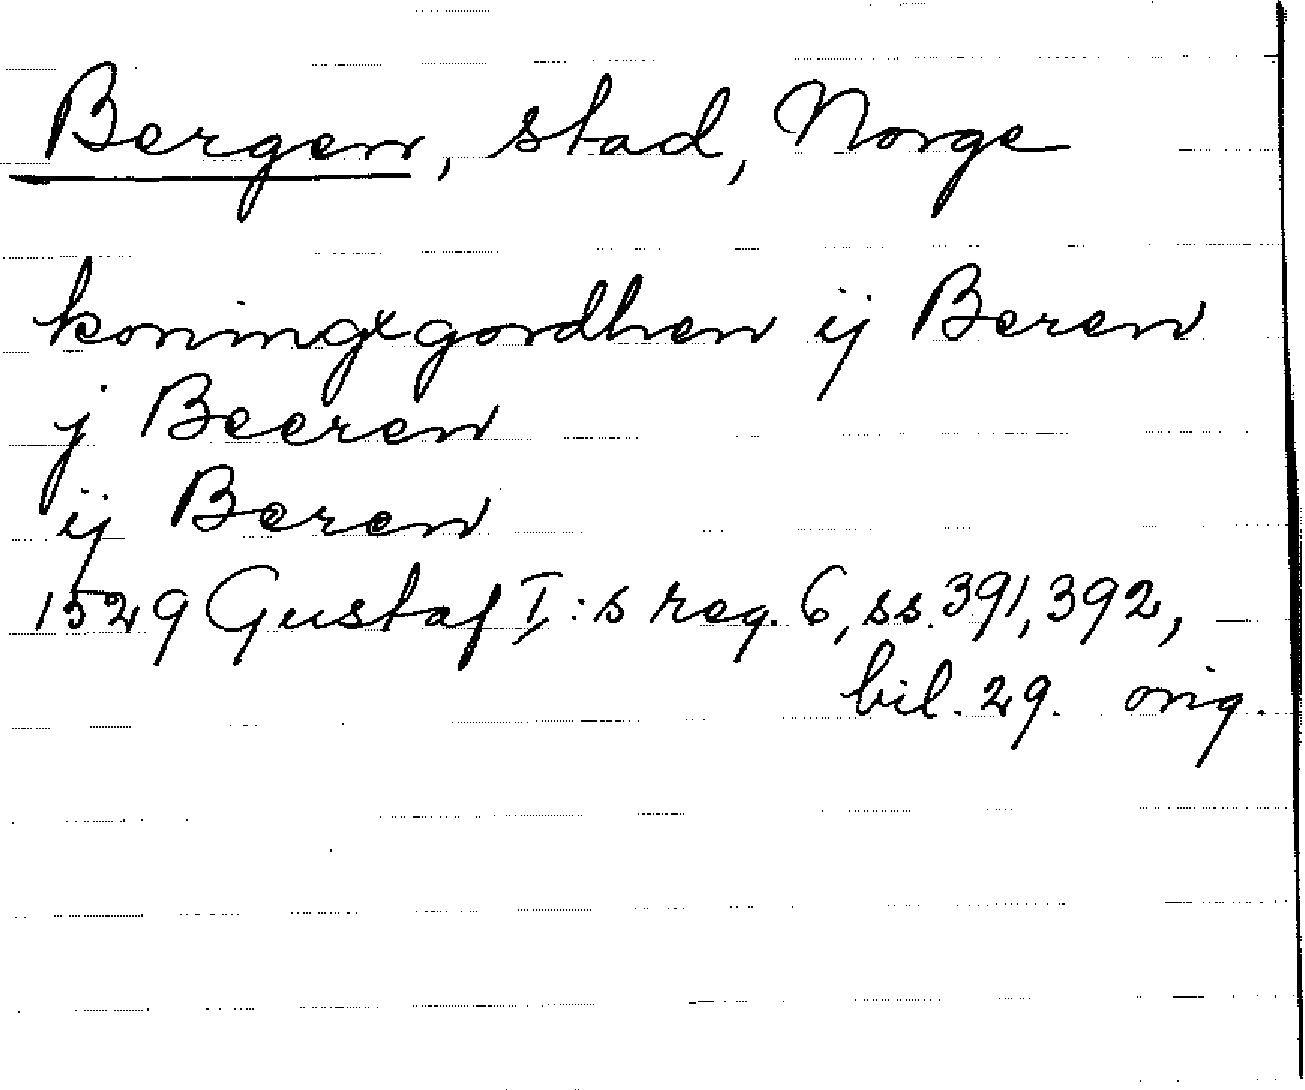 Bergen, stad, Norge
koningxgordhen ij Beren
j Beeren
ij Beren
1529 Gustaf I:s reg. 6, ss. 391, 392,
bil. 29. orig.